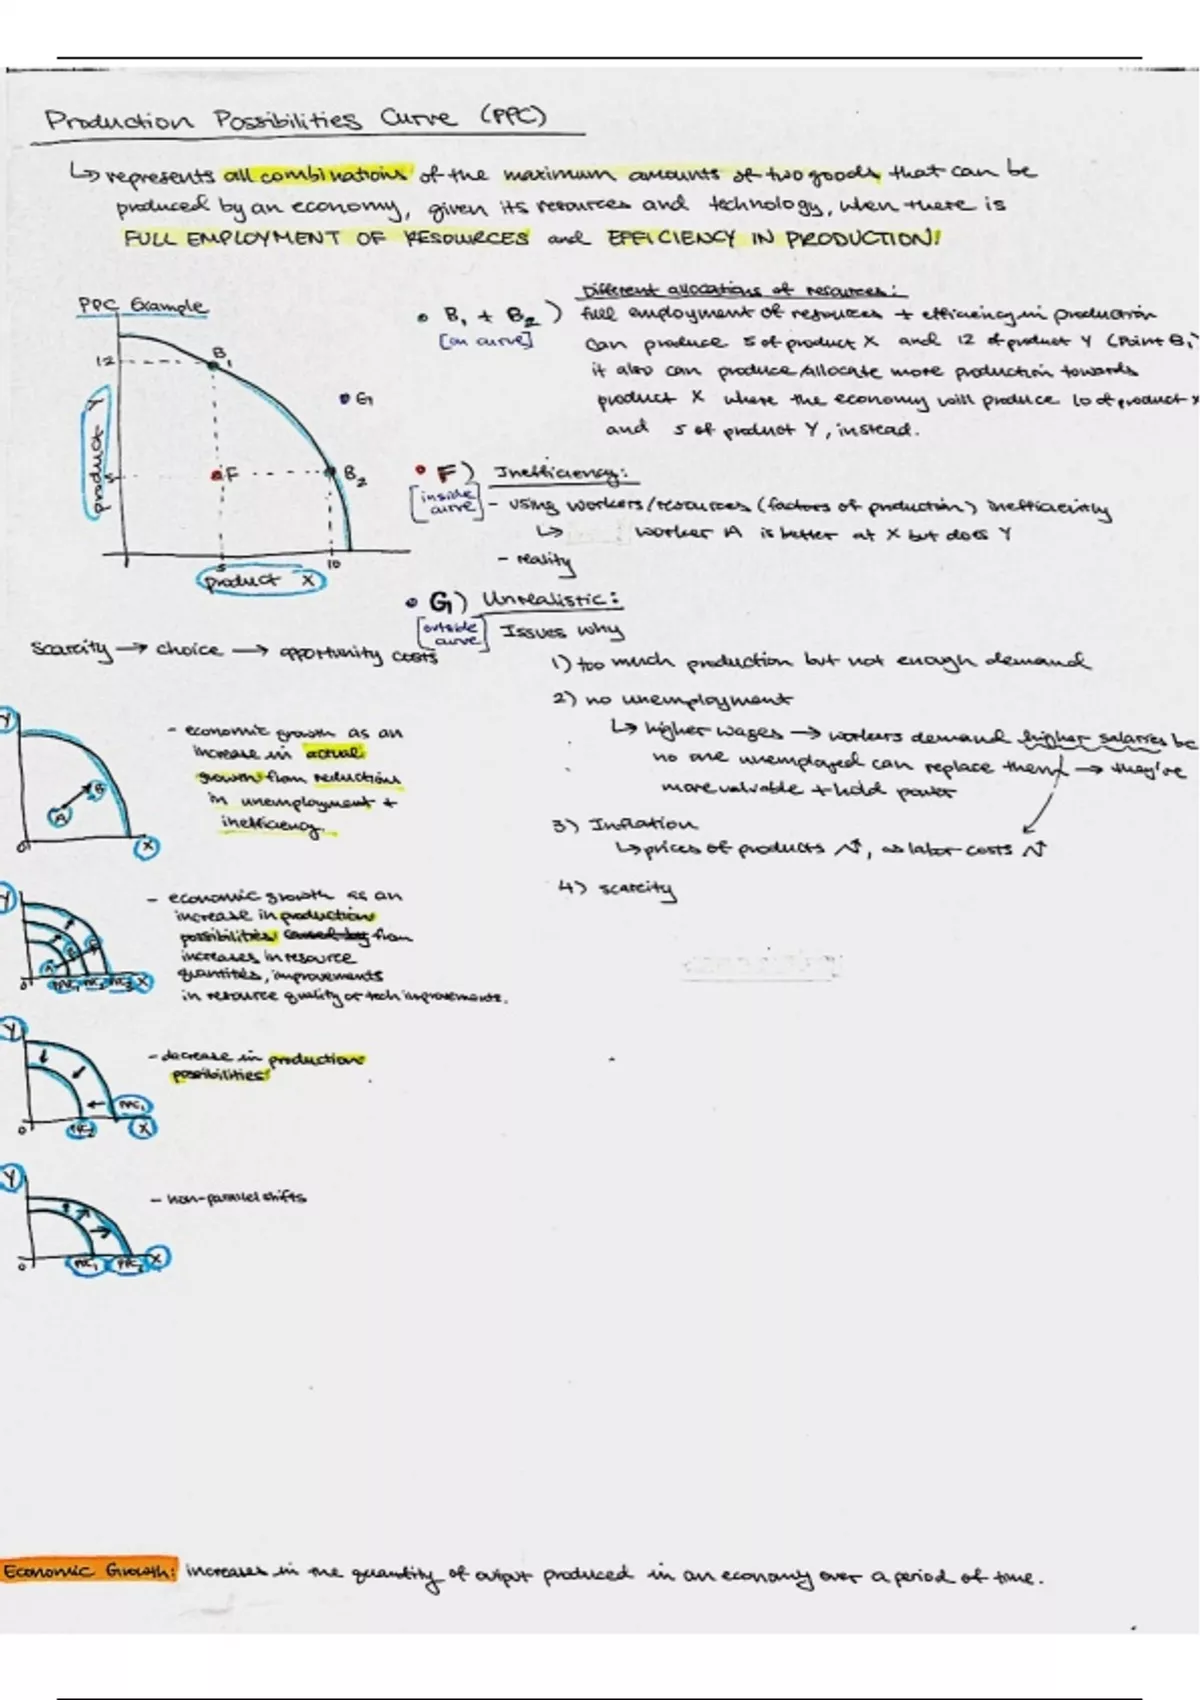 Production Possibilities Curve (PPC)
↳ represents all combinations of the maximum amounts of two goods that can be
produced by an economy, given its resources and technology, when there is
FULL EMPLOYMENT OF RESOURCES and EFFICIENCY IN PRODUCTION!
PPC Example
12
B₁
G
product Y
5
F
B₂
5
10
product X
Different allocations of resources:
• B₁ + B₂ ) full employment of resources + efficiency in production
[on curve]
can produce 5 of product X and 12 of product Y (Point B₁)
it also can produce/allocate more production towards
product X where the economy will produce 10 of product X
and 5 of product Y, instead.
• F) Inefficiency:
[inside curve]
- using workers/resources (factors of production) inefficiently
↳ worker A is better at X but does Y
- reality
• G) Unrealistic:
[outside curve]
Issues why
1) too much production but not enough demand
2) no unemployment
↳ higher wages → workers demand higher salaries bc
no one unemployed can replace them → they're
more valuable + hold power
3) Inflation
↳ prices of products ↑, as labor costs ↑
4) scarcity
scarcity → choice → opportunity costs
Y
A
B
0
X
- economic growth as an
increase in actual
growth from reductions
in unemployment +
inefficiency
Y
A
B
C
0
PPC₁ PPC₂ PPC₃ X
- economic growth as an
increase in production
possibilities caused by from
increases in resource
quantities, improvements
in resource quality or tech improvements.
Y
PPC₁
0
PPC₂
X
- decrease in production
possibilities
Y
0
PPC₁ PPC₂ X
- non-parallel shifts
Economic Growth: increases in the quantity of output produced in an economy over a period of time.